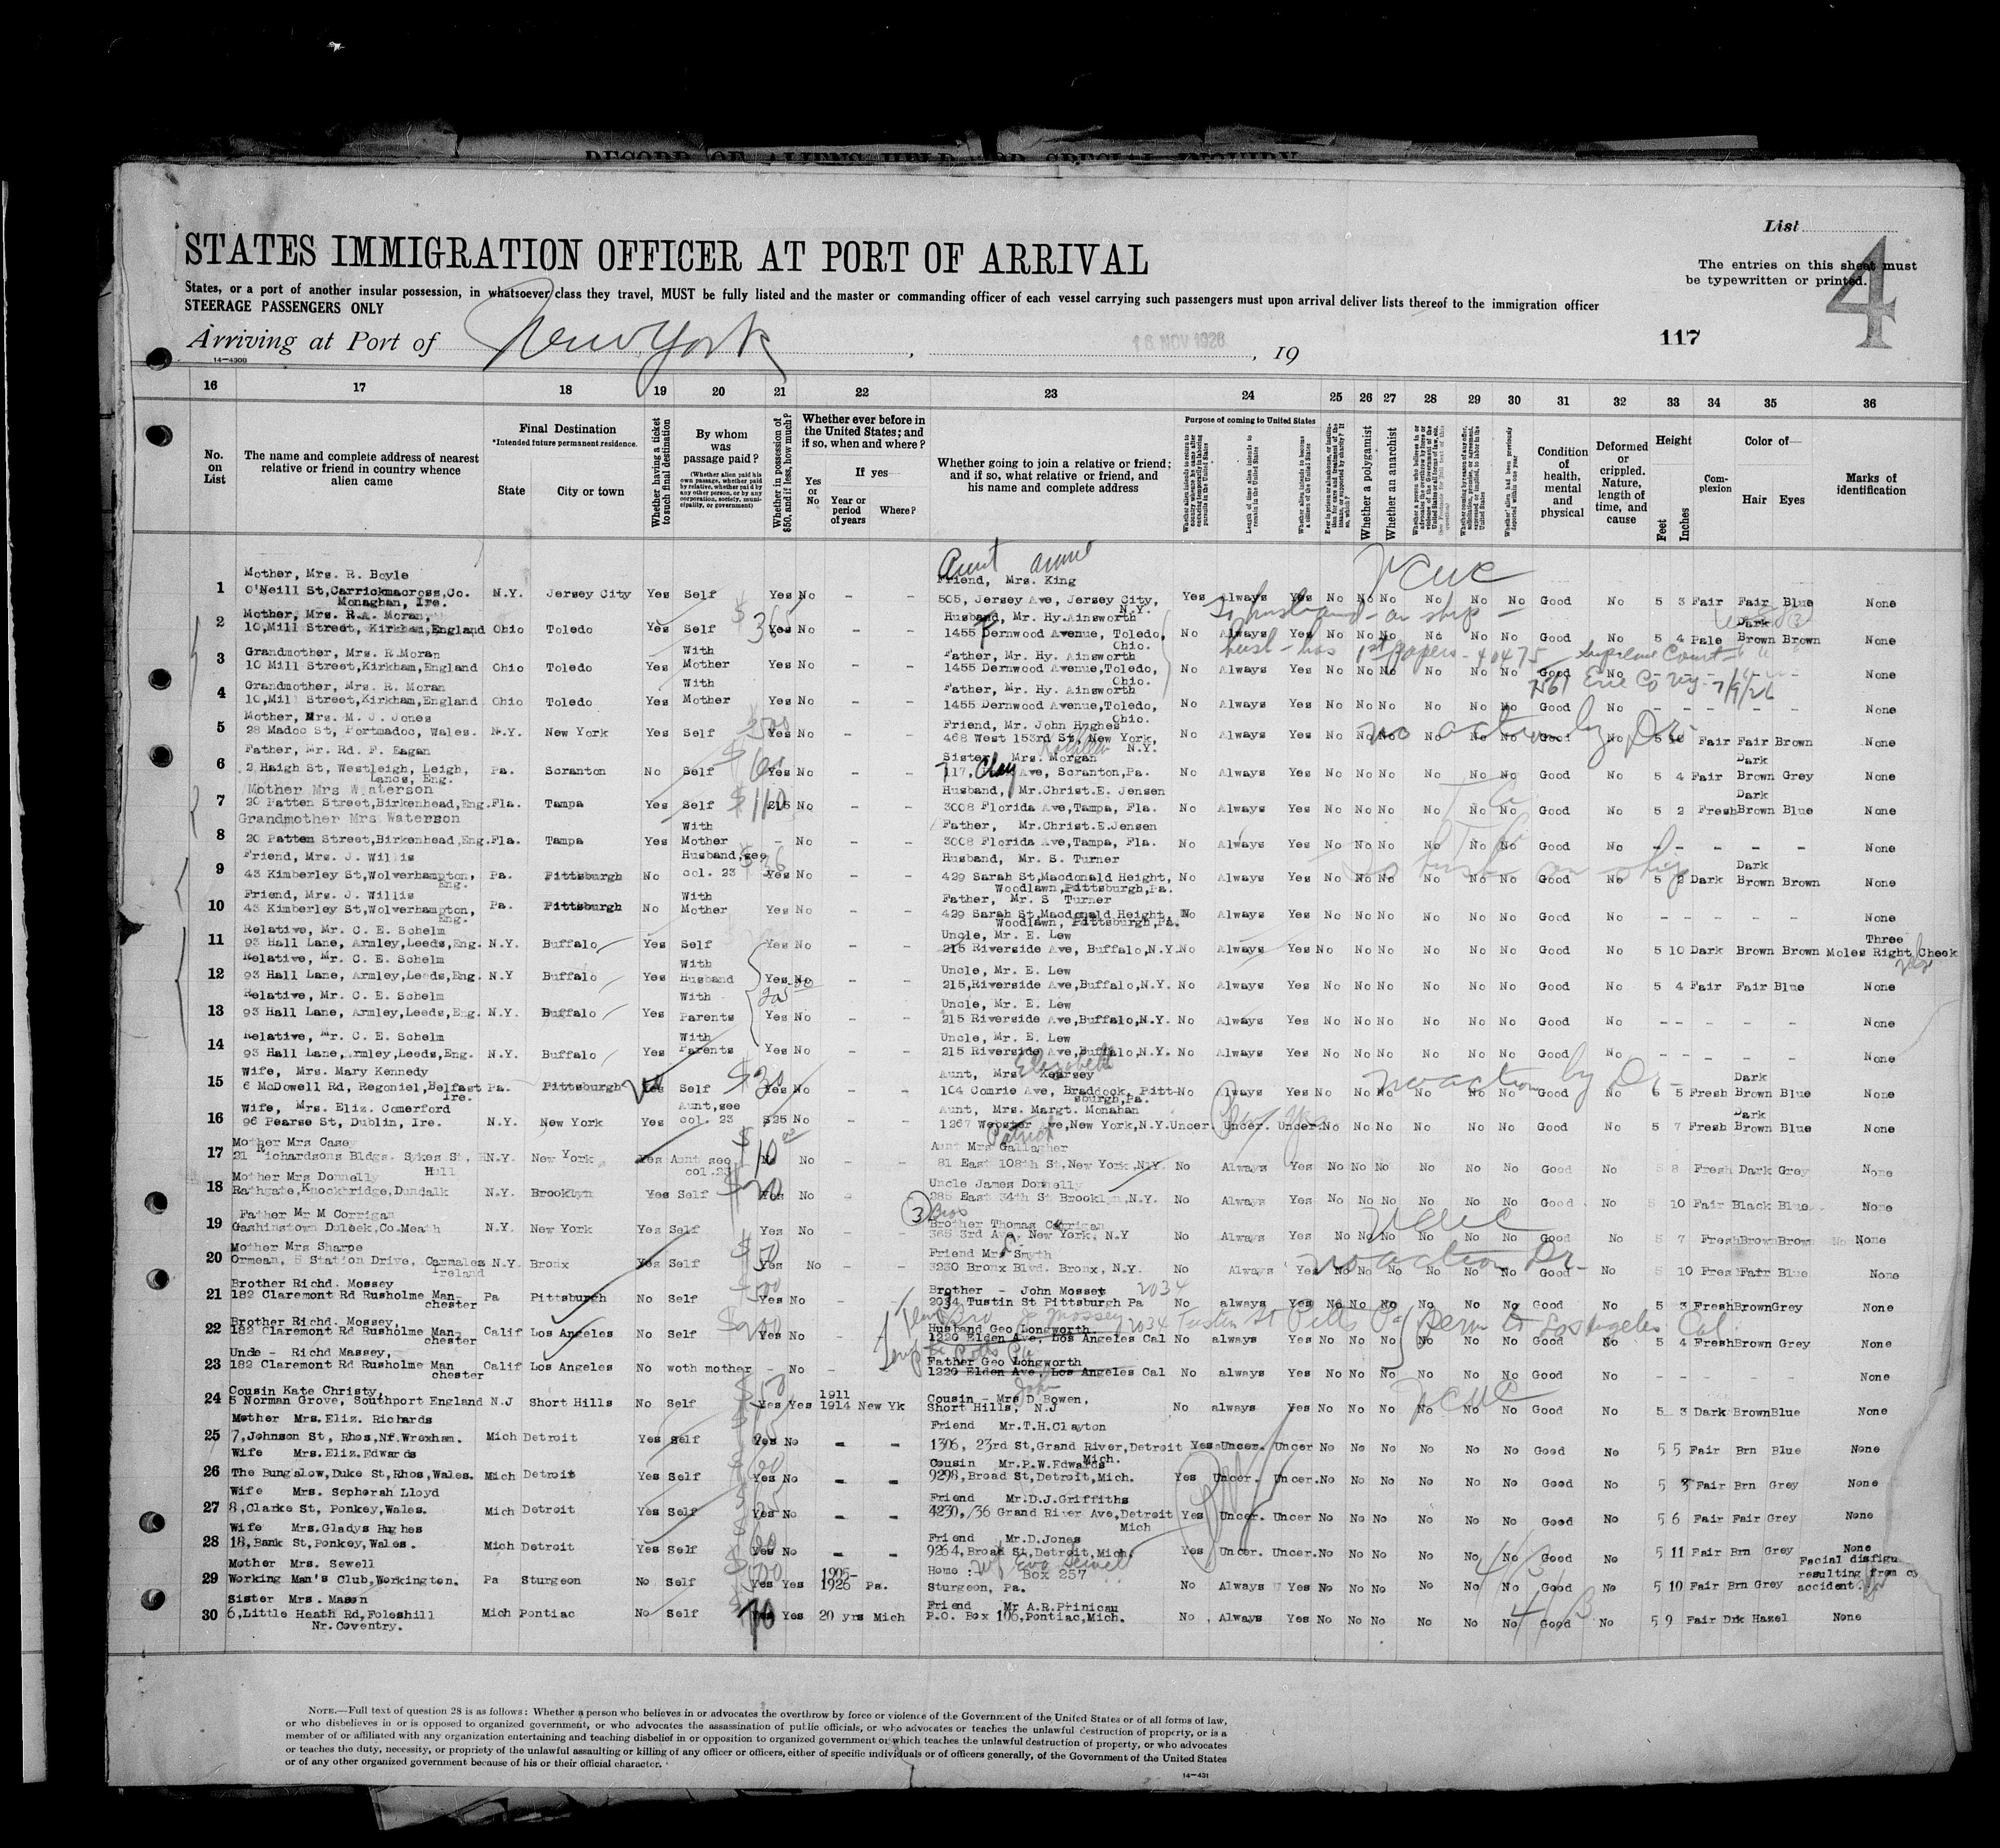 RECORD OF ALIENS HELD FOR SPECIAL INQUIRY
List
4
STATES IMMIGRATION OFFICER AT PORT OF ARRIVAL
The entries on this sheet must
be typewritten or printed.
States, or a port of another insular possession, in whatsoever class they travel, MUST be fully listed and the master or commanding officer of each vessel carrying such passengers must upon arrival deliver lists thereof to the immigration officer
STEERAGE PASSENGERS ONLY
Arriving at Port of New York, 16 NOV 1926, 19
117
14-430B
16 17 18 19 20 21 22 23 24 25 26 27 28 29 30 31 32 33 34 35 36
No. on List
The name and complete address of nearest relative or friend in country whence alien came
Final Destination
*Intended future permanent residence.
State
City or town
Whether having a ticket to such final destination
By whom was passage paid?
(Whether alien paid his own passage, whether paid by relative, whether paid by any other person, or by any corporation, society, municipality, or government)
Whether in possession of $50, and if less, how much?
Whether ever before in the United States; and if so, when and where?
Yes or No
If yes
Year or period of years
Where?
Whether going to join a relative or friend; and if so, what relative or friend, and his name and complete address
Purpose of coming to United States
Length of time alien intends to remain in the United States
Whether alien intends to become a citizen of the United States
Whether a polygamist
Whether an anarchist
Whether alien had been previously deported within one year
Condition of health, mental and physical
Deformed or crippled. Nature, length of time, and cause
Height
Feet
Inches
Complexion
Color of—
Hair
Eyes
Marks of identification
Aunt Annie
1 Mother, Mrs. R. Boyle
O'Neill St, Carrickmacross, Co. Monaghan, Ire. N.Y. Jersey City Yes Self Yes No - - Friend, Mrs. King
505, Jersey Ave, Jersey City, N.Y. Yes Always Yes No No No No No No Good No 5 3 Fair Fair Blue None
2 Mother, Mrs. R.A. Moran,
10, Mill Street, Kirkham, England Ohio Toledo Yes Self Yes No - - Husband, Mr. Hy. Ainsworth
1455 Dernwood Avenue, Toledo, Ohio. No Always Yes No No No No No No Good No 5 4 Pale Dark Brown Brown None
to husband on ship
husb has 1st papers - 40475 Supreme Court
Erie Co NY 7/9/26
3 Grandmother, Mrs. R. Moran
10 Mill Street, Kirkham, England Ohio Toledo Yes With Mother Yes No - - Father, Mr. Hy. Ainsworth
1455 Dernwood Avenue, Toledo, Ohio. No Always Yes No No No No No No Good None
4 Grandmother, Mrs. R. Moran
10, Mill Street, Kirkham, England Ohio Toledo Yes With Mother Yes No - - Father, Mr. Hy. Ainsworth
1455 Dernwood Avenue, Toledo, Ohio. No Always Yes No No No No No No Good No - - - - - None
5 Mother, Mrs. M. J. Jones
28 Madoc St, Portmadoc, Wales. N.Y. New York Yes Self Yes No - - Friend, Mr. John Hughes
468 West 153rd St, New York, N.Y. No Always Yes No No No No No No Good No 5 Fair Fair Brown None
no action by Dr.
6 Father, Mr. Rd. F. Eagan
2 Haigh St, Westleigh, Leigh, Lancs, Eng. Pa. Scranton No Self $60 Yes No - - Sister, Mrs. Morgan
117, Clay Ave, Scranton, Pa. No Always Yes No No No No No No Good No 5 4 Fair Dark Brown Grey None
7 Mother Mrs Waterson
20 Patten Street, Birkenhead, Eng. Fla. Tampa Yes Self $110 No - - Husband, Mr. Christ. E. Jensen
3008 Florida Ave, Tampa, Fla. No Always Yes No No No No No No Good No 5 2 Fresh Dark Brown Blue None
8 Grandmother Mrs Waterson
20 Patten Street, Birkenhead, Eng. Fla. Tampa Yes With Mother - No - - Father, Mr. Christ. E. Jensen
3008 Florida Ave, Tampa, Fla. No Always Yes No No No No No No Good No - - - - - None
9 Friend, Mrs. J. Willis
43 Kimberley St, Wolverhampton, Eng. Pa. Pittsburgh No Husband, see col. 23 Yes No - - Husband, Mr. S. Turner
429 Sarah St, Macdonald Height, Woodlawn, Pittsburgh, Pa. No Always Yes No No No No No No Good No 5 2 Dark Dark Brown Brown None
to husb on ship
10 Friend, Mrs. J. Willis
43 Kimberley St, Wolverhampton, Eng. Pa. Pittsburgh No With Mother Yes No - - Father, Mr. S Turner
429 Sarah St, Macdonald Height, Woodlawn, Pittsburgh, Pa. No Always Yes No No No No No No Good No - - - - - None
11 Relative, Mr. C. E. Schelm
93 Hall Lane, Armley, Leeds, Eng. N.Y. Buffalo Yes Self Yes No - - Uncle, Mr. E. Lew
215 Riverside Ave, Buffalo, N.Y. No Always Yes No No No No No No Good No 5 10 Dark Brown Brown Three Moles Right Cheek
12 Relative, Mr. C. E. Schelm
93 Hall Lane, Armley, Leeds, Eng. N.Y Buffalo Yes With Husband Yes No - - Uncle, Mr. E. Lew
215, Riverside Ave, Buffalo, N.Y. No Always Yes No No No No No No Good No 5 4 Fair Fair Blue None
13 Relative, Mr. C. E. Schelm
93 Hall Lane, Armley, Leeds, Eng. N.Y. Buffalo Yes With Parents Yes No - - Uncle, Mr. E. Lew
215 Riverside Ave, Buffalo, N.Y. No Always Yes No No No No No No Good No - - - - - None
14 Relative, Mr. C. E. Schelm
93 Hall Lane, Armley, Leeds, Eng. N.Y. Buffalo Yes With Parents Yes No - - Uncle, Mr. E. Lew
215 Riverside Ave, Buffalo, N.Y. No Always Yes No No No No No No Good No - - - - - None
15 Wife, Mrs. Mary Kennedy
6 McDowell Rd, Regoniel, Belfast Ire. Pa. Pittsburgh Yes Self $30 Yes No Aunt, Mrs Elizabeth Kearsey
104 Comrie Ave, Braddock, Pittsburgh, Pa. No Always Yes No No No No No No Good No 6 5 Fresh Dark Brown Blue None
no action by Dr.
16 Wife, Mrs. Eliz. Comerford
96 Pearse St, Dublin, Ire. N.Y. New York Yes Aunt, see col. 23 $25 No - - Aunt, Mrs. Margt. Monahan
1267 Webster Ave, New York, N.Y. Uncer. Uncer. Uncer. No No No No No No Good No 5 7 Fresh Dark Brown Blue None
17 Mother Mrs Casey
21 Richardsons Bldgs. Sykes St, Hull N.Y. New York Yes Aunt see col. 23 $10 No - - Aunt Mrs Patrick Gallagher
81 East 108th St, New York, N.Y. No Always Yes No No No No No No Good No 5 8 Fresh Dark Grey None
18 Mother Mrs Donnelly
Rathgate, Knockbridge, Dundalk N.Y. Brooklyn Yes Self $20 Yes No - - Uncle James Donnelly
285 East 34th St Brooklyn, N.Y. No Always Yes No No No No No No Good No 5 10 Fair Black Blue None
19 Father Mr M Corrigan
Gashinstown Duleek, Co. Meath N.Y. New York Yes Self Yes No - - Brother Thomas Corrigan
365 3rd Ave, New York, N.Y No Always Yes No No No No No No Good No 5 7 Fresh Brown Brown None
20 Mother Mrs Sharpe
Ormean, 5 Station Drive, Carmalea Ireland N.Y. Bronx Yes Self $50 Yes No - - Friend Mrs Smyth
3230 Bronx Blvd. Bronx, N.Y. No Always Yes No No No No No No Good No 5 10 Fresh Fair Blue None
no action Dr.
21 Brother Richd. Mossey
182 Claremont Rd Rusholme Manchester Pa Pittsburgh No Self Yes No - - Brother - John Mossey
2034 Tustin St Pittsburgh Pa No always Yes No No No No No No Good No 5 3 Fresh Brown Grey None
22 Brother Richd. Mossey,
182 Claremont Rd Rusholme Manchester Calif Los Angeles No Self $200 Yes No Husband Geo Longworth
1220 Elden Ave, Los Angeles Cal No always Yes No No No No No No Good No 5 4 Fresh Brown Grey None
Temp Bro J. Mossey 2034 Tustin St Pitts Pa Perm to Los Angeles Cal
23 Uncle - Richd Massey,
182 Claremont Rd Rusholme Manchester Calif Los Angeles No woth mother - No - Father Geo Longworth
1220 Elden Ave, Los Angeles Cal No always Yes No No No No No No Good No - - - - - None
24 Cousin Kate Christy,
5 Norman Grove, Southport England N.J Short Hills No Self $50 Yes Yes 1911 1914 New Yk Cousin - Mrs John D. Bowen,
Short Hills, N.J No always Yes No No No No No No Good No 5 3 Dark Brown Blue None
25 Mother Mrs. Eliz. Richards
7, Johnson St, Rhos, Nr. Wrexham. Mich Detroit Yes Self Yes No - - Friend Mr. T.H. Clayton
1306, 23rd St, Grand River, Detroit Mich. Yes Uncer. Uncer No No No No No No Good No 5 5 Fair Brn Blue None
26 Wife Mrs. Eliz. Edwards
The Bungalow, Duke St, Rhos, Wales. Mich Detroit Yes Self Yes No - - Cousin Mr. P.W. Edwards
9298, Broad St, Detroit, Mich. Yes Uncer. Uncer. No No No No No No Good No 5 Fair Brn Grey None
27 Wife Mrs. Sephorah Lloyd
8, Clarke St, Ponkey, Wales. Mich Detroit Yes Self Yes No - - Friend Mr. D.J. Griffiths
4230,/36 Grand River Ave, Detroit Mich Yes Uncer. Uncer No No No No No No Good No 5 6 Fair Fair Grey None
28 Wife Mrs. Gladys Hughes
18, Bank St, Ponkey, Wales. Mich Detroit Yes Self Yes No - - Friend Mr. D. Jones
9264, Broad St, Detroit, Mich. Yes Uncer. Uncer. No No No No No No Good No 5 11 Fair Brn Grey None
29 Mother Mrs. Sewell
Working Man's Club, Workington. Pa Sturgeon No Self Yes Yes 1905- 1926 Pa. Home : Wf Eva Sewell Box 257
Sturgeon, Pa. No Always Yes No No No No No No Good No 5 10 Fair Brn Grey Facial disfigu resulting from accident.
30 Sister Mrs. Mason
6, Little Heath Rd, Foleshill Nr. Coventry. Mich Pontiac No Self 70 Yes Yes 20 yrs Mich Friend Mr A.R. Prinicau
P.O. Box 106, Pontiac, Mich. No Always Yes No No No No No No Good No 5 9 Fair Drk Hazel None
NOTE.—Full text of question 28 is as follows: Whether a person who believes in or advocates the overthrow by force or violence of the Government of the United States or of all forms of law,
or who disbelieves in or is opposed to organized government, or who advocates the assassination of public officials, or who advocates or teaches the unlawful destruction of property, or is a
member of or affiliated with any organization entertaining and teaching disbelief in or opposition to organized government or which teaches the unlawful destruction of property, or who advocates
or teaches the duty, necessity, or propriety of the unlawful assaulting or killing of any officer or officers, either of specific individuals or of officers generally, of the Government of the United States
or of any other organized government because of his or their official character.
14-431